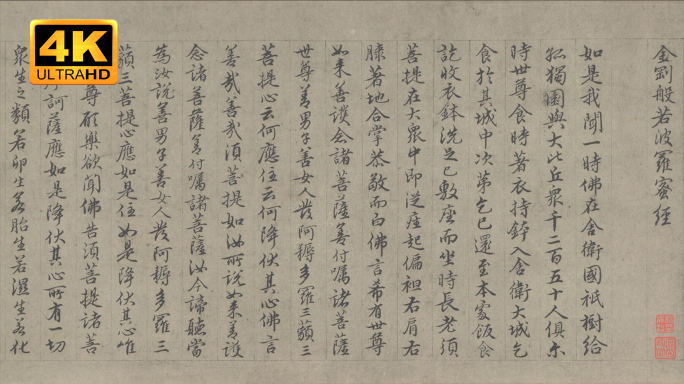 4K
ULTRA HD
金剛般若波羅蜜經
如是我聞一時佛在舍衛國祇樹給
孤獨園與大比丘眾千二百五十人俱尒
時世尊食時著衣持鉢入舍衛大城乞
食於其城中次第乞已還至本處飯食
訖收衣鉢洗足已敷座而坐時長老須
菩提在大眾中即從座起偏袒右肩右
膝著地合掌恭敬而白佛言希有世尊
如来善護念諸菩薩善付囑諸菩薩
世尊善男子善女人發阿耨多羅三藐三
菩提心云何應住云何降伏其心佛言
善哉善哉須菩提如汝所說如来善護
念諸菩薩善付囑諸菩薩汝今諦聽當
為汝說善男子善女人發阿耨多羅三
藐三菩提心應如是住如是降伏其心唯
尊願樂欲聞佛告須菩提諸菩
訶薩應如是降伏其心所有一切
眾生之類若卵生若胎生若濕生若化